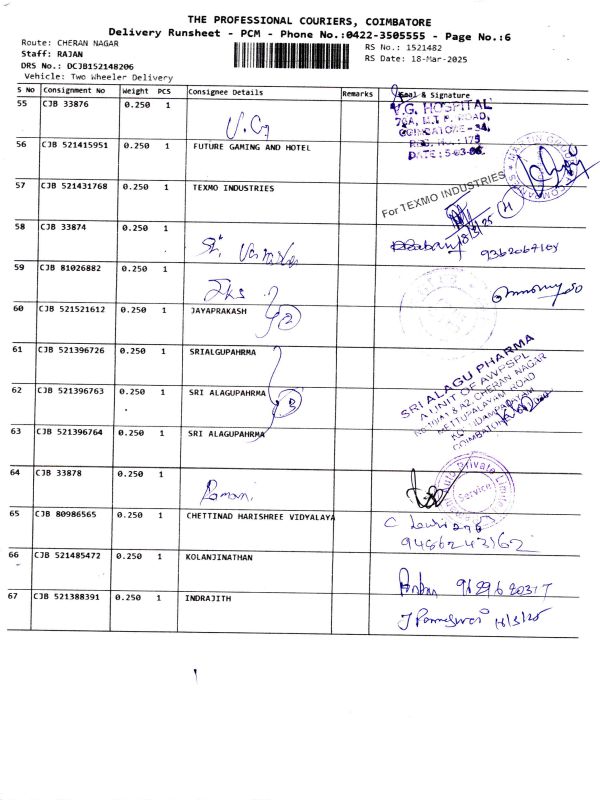 THE PROFESSIONAL COURIERS, COIMBATORE
Delivery Runsheet - PCM - Phone No.:0422-3505555 - Page No.:6
Route: CHERAN NAGAR
RS No.: 1521482
Staff: RAJAN
RS Date: 18-Mar-2025
DRS No.: DCJB152148206
Vehicle: Two Wheeler Delivery
S No Consignment No Weight PCS Consignee Details Remarks Seal & Signature
55 CJB 33876 0.250 1 V.G
V.G. HOSPITAL
70A, M.T.P. ROAD,
COIMBATORE - 34.
REG. NO.: 175
56 CJB 521415951 0.250 1 FUTURE GAMING AND HOTEL
57 CJB 521431768 0.250 1 TEXMO INDUSTRIES
For TEXMO INDUSTRIES
58 CJB 33874 0.250 1
9362067104
59 CJB 81026882 0.250 1
60 CJB 521521612 0.250 1 JAYAPRAKASH 2
61 CJB 521396726 0.250 1 SRIALGUPAHRMA
62 CJB 521396763 0.250 1 SRI ALAGUPAHRMA 3
63 CJB 521396764 0.250 1 SRI ALAGUPAHRMA
SRI ALAGU PHARMA
A UNIT OF AWFSPL
CHERAN NAGAR
METTUPALAYAM ROAD
COIMBATORE
64 CJB 33878 0.250 1 Ramani
Private Limited
Service
65 CJB 80986565 0.250 1 CHETTINAD HARISHREE VIDYALAYA
9486243162
66 CJB 521485472 0.250 1 KOLANJINATHAN
67 CJB 521388391 0.250 1 INDRAJITH
18/3/25